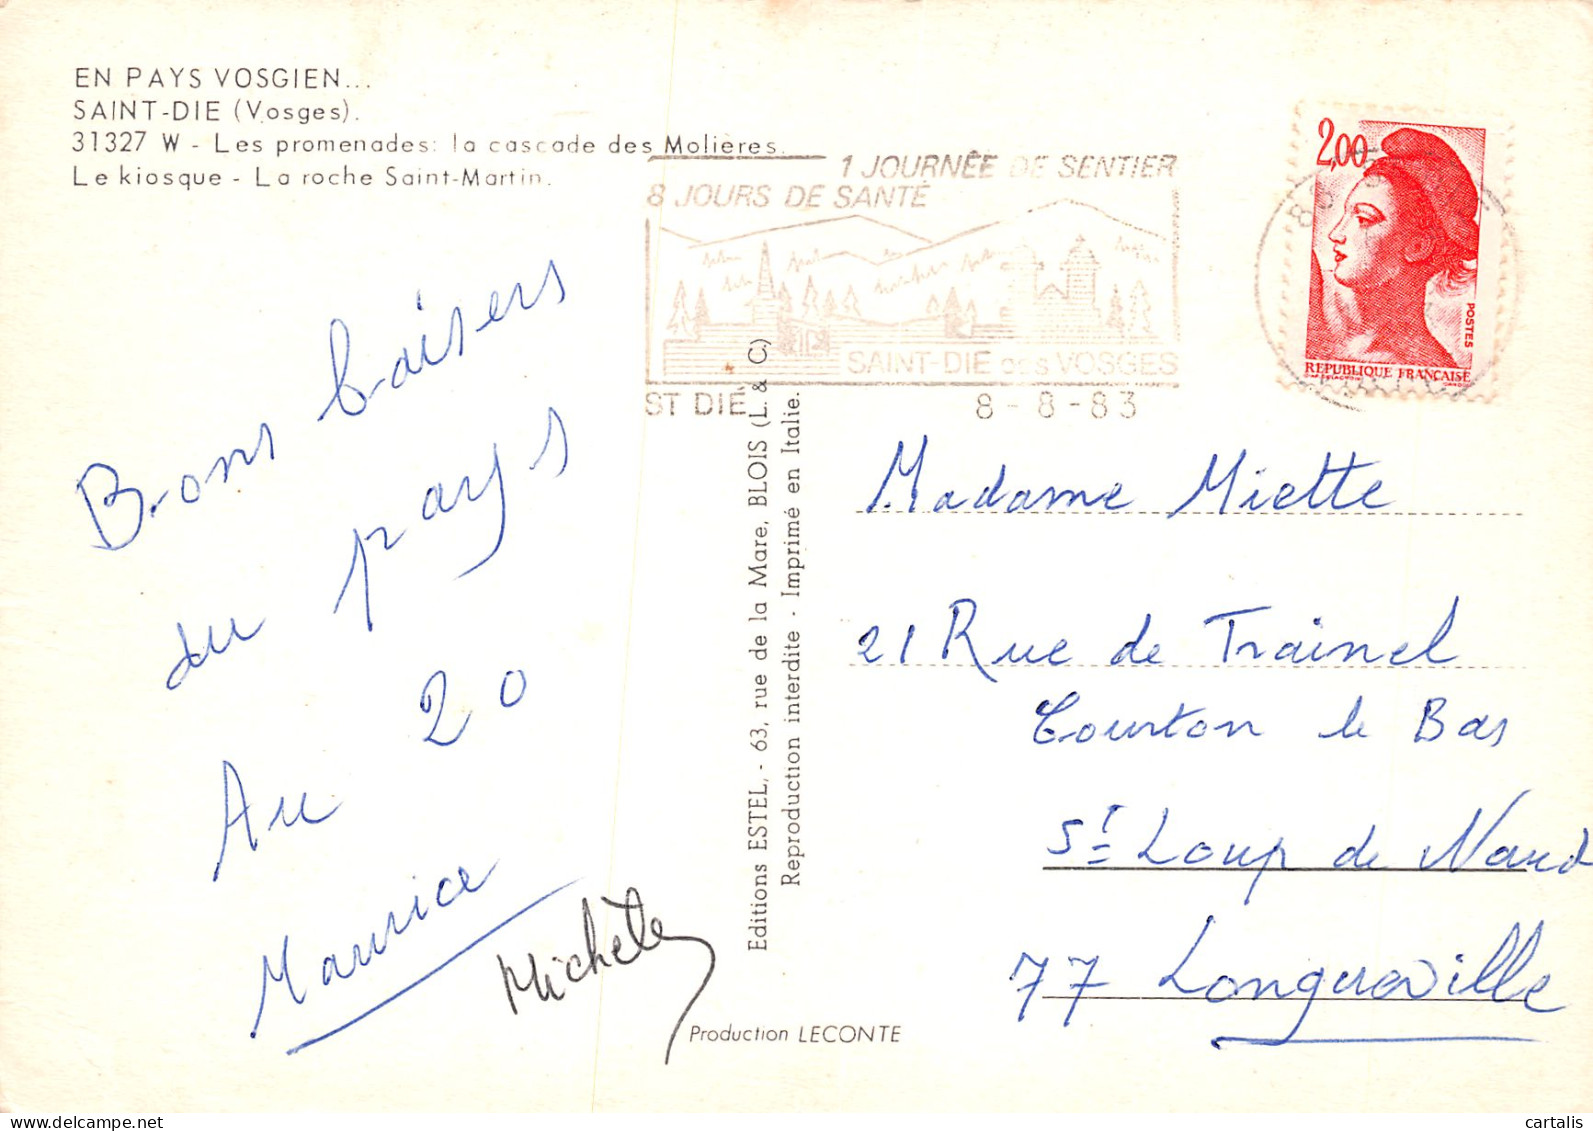 EN PAYS VOSGIEN...
SAINT-DIE (Vosges).
31327 W - Les promenades: la cascade des Molières.
Le kiosque - La roche Saint-Martin.
1 JOURNÉE DE SENTIER
8 JOURS DE SANTÉ
SAINT-DIE des VOSGES
ST DIÉ
8-8-83
2,00
POSTES
REPUBLIQUE FRANÇAISE
Bons baisers
du pays
Au 20
Maurice
Michèle
Editions ESTEL, - 63, rue de la Mare, BLOIS (L. & C.)
Reproduction interdite - Imprimé en Italie.
Production LECONTE
Madame Miette
21 Rue de Trainel
Courton le Bas
St Loup de Naud
77 Longueville
cartalis
www.delcampe.net